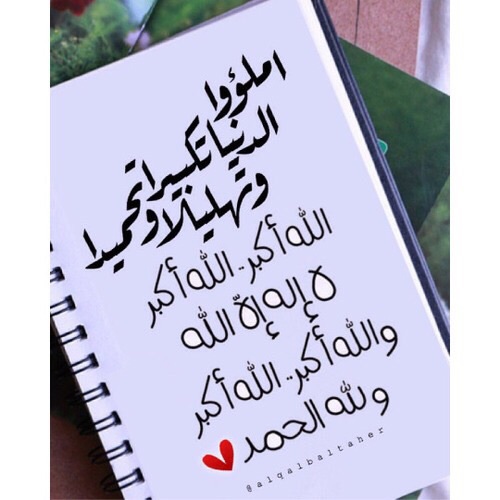 املؤوا
الدنيا تكبيرا
وتهليلا وتحميدا
الله أكبر.. الله أكبر
لا إله إلا الله
والله أكبر.. الله أكبر
ولله الحمد
@alqalbaltaher